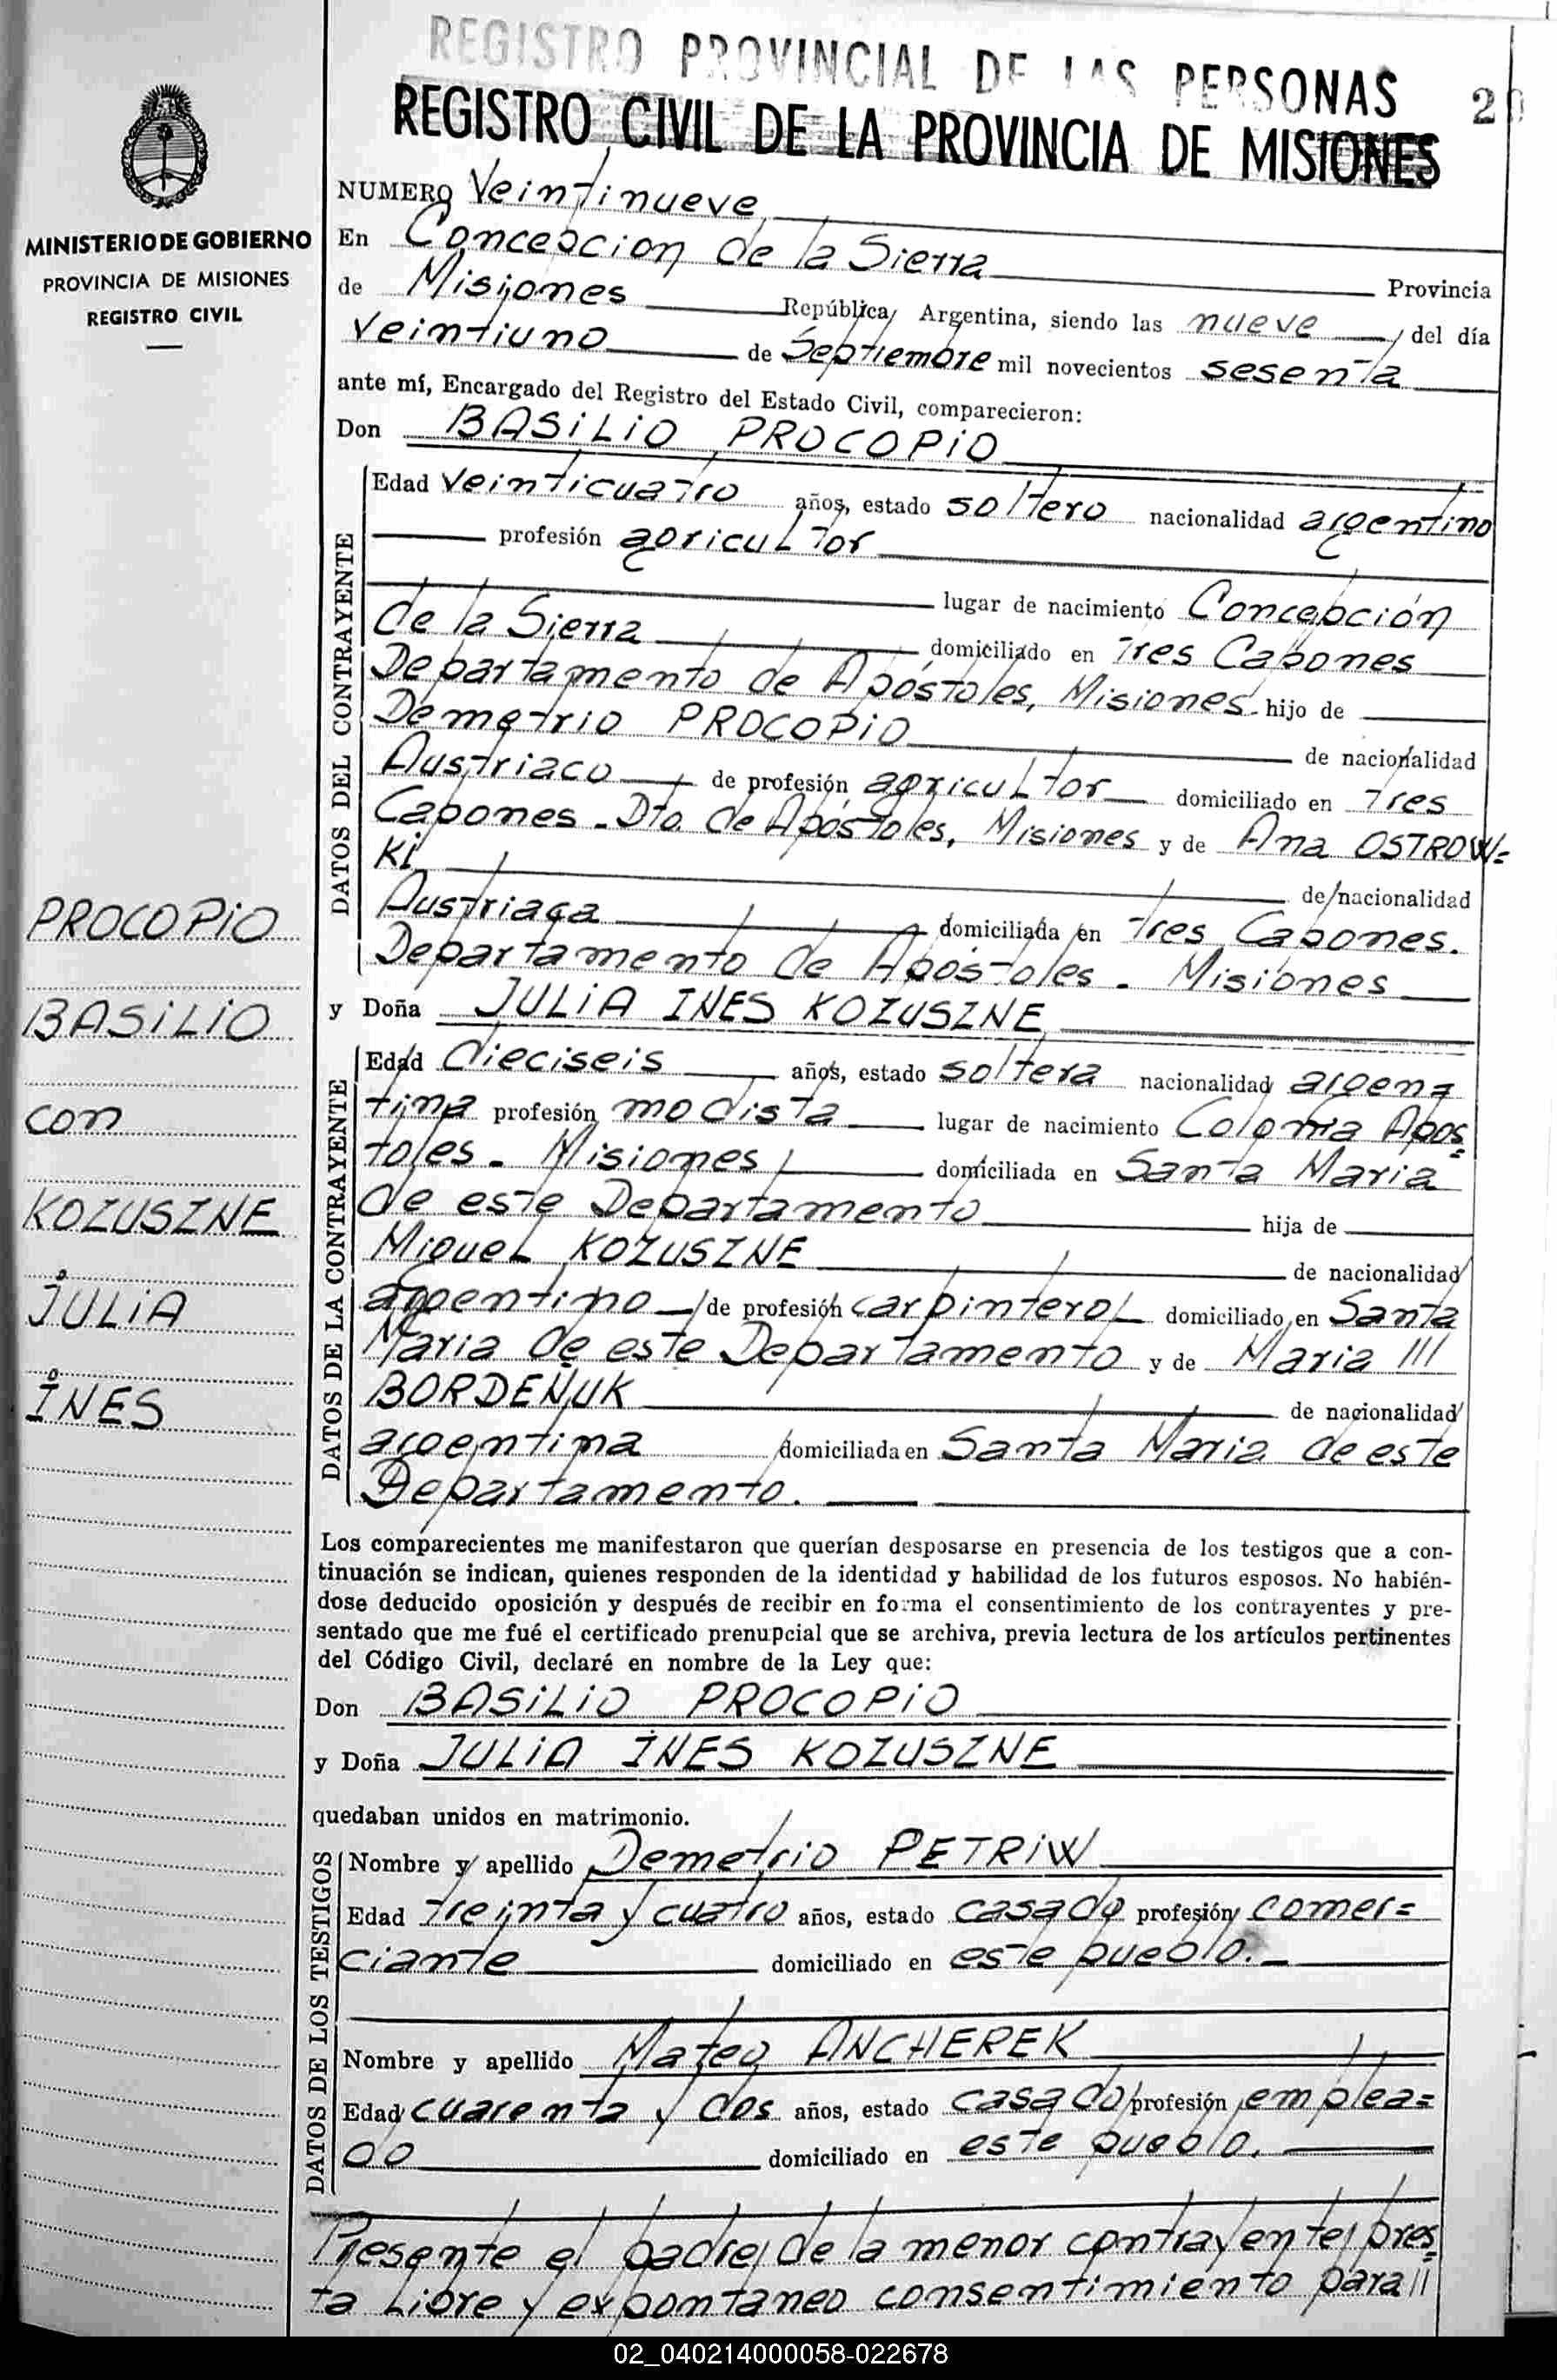 REGISTRO PROVINCIAL DE LAS PERSONAS
REGISTRO CIVIL DE LA PROVINCIA DE MISIONES
MINISTERIO DE GOBIERNO
PROVINCIA DE MISIONES
REGISTRO CIVIL
PROCOPIO
BASILIO
con
KOZUSZNE
JULIA
INES
NUMERO Veintinueve
En Concepcion de la Sierra Provincia
de Misiones República Argentina, siendo las nueve del día
Veintiuno de Septiembre mil novecientos sesenta
ante mí, Encargado del Registro del Estado Civil, comparecieron:
Don BASILIO PROCOPIO
DATOS DEL CONTRAYENTE
Edad Veinticuatro años, estado soltero nacionalidad argentino
profesión agricultor
lugar de nacimiento Concepción
de la Sierra domiciliado en Tres Capones
Departamento de Apóstoles, Misiones hijo de
Demetrio PROCOPIO de nacionalidad
Austriaco de profesión agricultor domiciliado en Tres
Capones - Dto. de Apóstoles, Misiones y de Ana OSTROW=
Ki de nacionalidad
Austriaca domiciliada en Tres Capones.
Departamento de Apóstoles - Misiones
y Doña JULIA INES KOZUSZNE
DATOS DE LA CONTRAYENTE
Edad dieciseis años, estado soltera nacionalidad argen=
tina profesión modista lugar de nacimiento Colonia Apos=
toles - Misiones domiciliada en Santa Maria
de este Departamento hija de
Miguel KOZUSZNE de nacionalidad
argentino de profesión carpintero domiciliado en Santa
Maria de este Departamento y de Maria ///
BORDENUK de nacionalidad
argentina domiciliada en Santa Maria de este
Departamento.
Los comparecientes me manifestaron que querían desposarse en presencia de los testigos que a con-
tinuación se indican, quienes responden de la identidad y habilidad de los futuros esposos. No habién-
dose deducido oposición y después de recibir en forma el consentimiento de los contrayentes y pre-
sentado que me fué el certificado prenupcial que se archiva, previa lectura de los artículos pertinentes
del Código Civil, declaré en nombre de la Ley que:
Don BASILIO PROCOPIO
y Doña JULIA INES KOZUSZNE
quedaban unidos en matrimonio.
DATOS DE LOS TESTIGOS
Nombre y apellido Demetrio PETRIW
Edad treinta y cuatro años, estado casado profesión comer=
ciante domiciliado en este pueblo.-
Nombre y apellido Mateo ANCHEREK
Edad cuarenta y dos años, estado casado profesión emplea=
do domiciliado en este pueblo.
Presente el padre de la menor contrayente, pres=
ta libre y expontaneo consentimiento para //
02_040214000058-022678